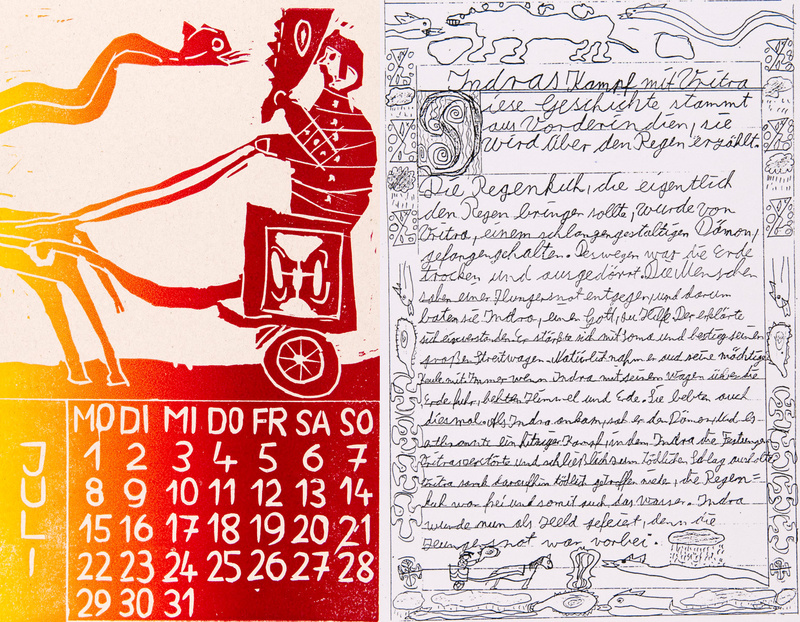 MO DI MI DO FR SA SO
JULI
1 2 3 4 5 6 7
8 9 10 11 12 13 14
15 16 17 18 19 20 21
22 23 24 25 26 27 28
29 30 31
Indras Kampf mit Vritra
Diese Geschichte stammt
aus Vorderindien, sie
wird über den Regen erzählt.
Die Regenkuh, die eigentlich
den Regen bringen sollte, wurde von
Vritra, einem schlangengestaltigen Dämon,
gefangengehalten. Deswegen war die Erde
trocken und ausgedörrt. Die Menschen
sahen einer Hungersnot entgegen, und darum
baten sie Indra, einen Gott, zu Hilfe. Der erklärte
sich einverstanden. Er stärkte sich mit Soma und bestieg seinen
großen Streitwagen. Natürlich nahm er auch seine mächtige
Keule mit. Immer wenn Indra mit seinem Wagen über die
Erde fuhr, bebten Himmel und Erde. Sie bebten auch
diesmal. Als Indra ankam, sah er den Dämon, und es
entbrannte ein hitziger Kampf, in dem Indra die Festungen
Vritras zerstörte und schließlich zum tödlichen Schlag ausholte.
Vritra sank daraufhin tödlich getroffen nieder, die Regen=
kuh war frei und somit auch das Wasser. Indra
wurde nun als Held gefeiert, denn die
Hungersnot war vorbei.